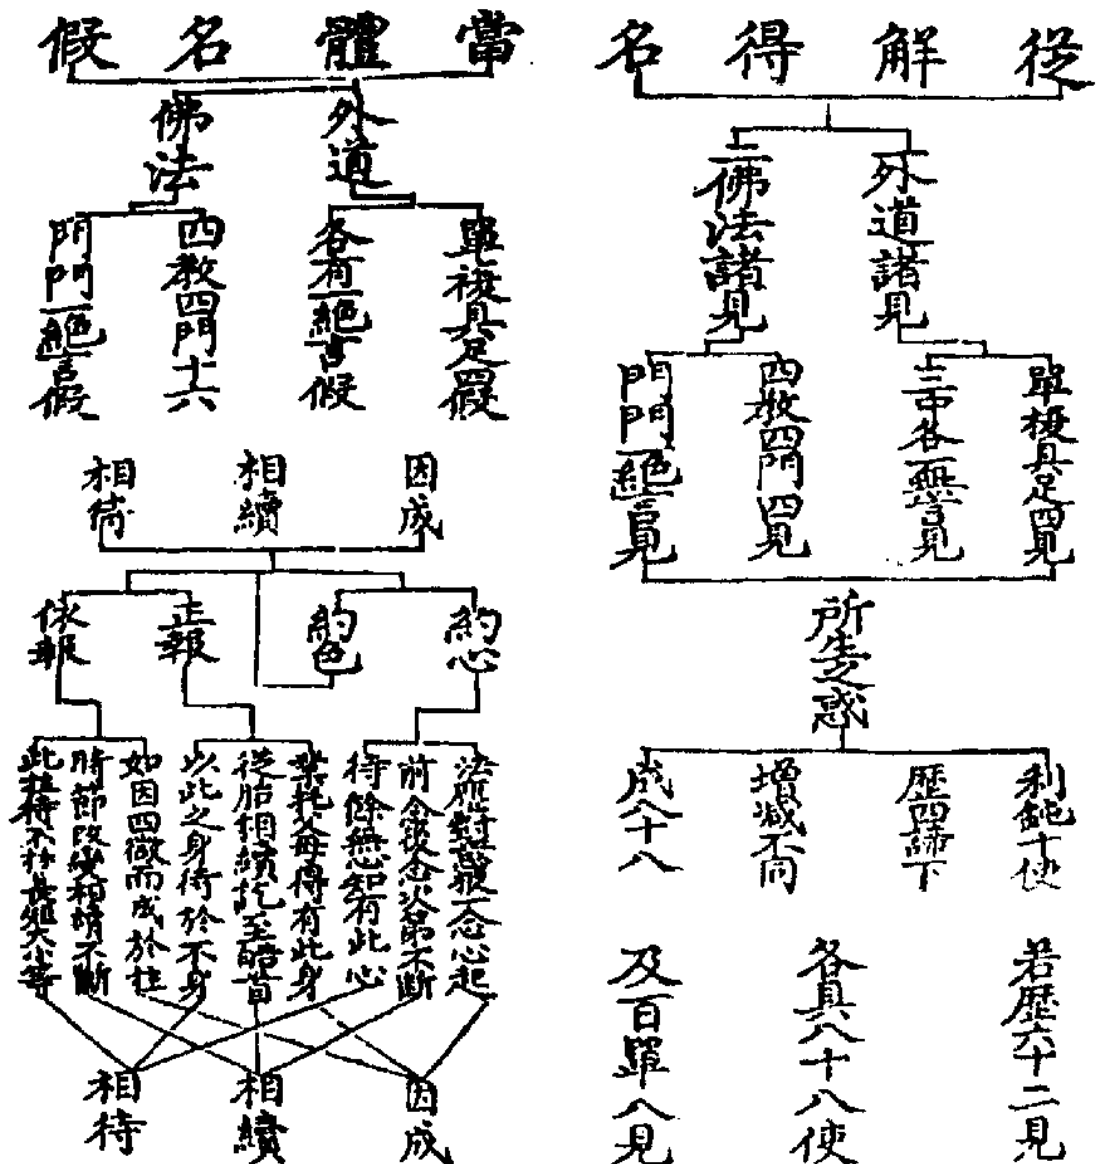 從解得名
外道諸見
單複具足四見
三中各一無言見
二佛法諸見
四教四門四見
門門一絕言見
所生之惑
利鈍十使
歷四諦下
增減不同
成八十八
若歷六十二見
各具八十八使
及百單八見
當體名假
外道
單複具足四假
各有一絕言假
佛法
四教四門十六
門門一絕言假
因成
相續
相待
約心
約色
正報
依報
法塵對意根一念心起
前念後念次第不斷
待餘無心知有此心
業托父母得有此身
從胎相續訖至皓首
以此之身待於不身
如因四微而成於柱
時節改變相續不斷
此柱待不柱長短大小等
因成
相續
相待